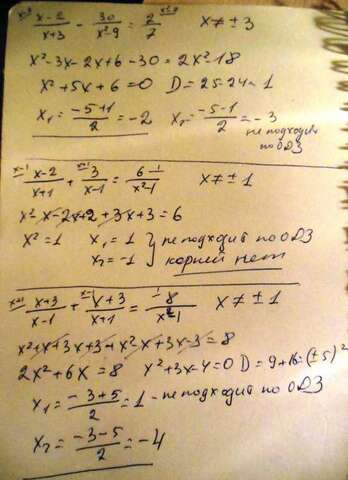 x-3 x-2/x+3 - 30/x²-9 = 2/7 x²-9 x ≠ ± 3
x²-3x-2x+6-30 = 2x²-18
x²+5x+6=0 D=25-24=1
x₁ = -5+1/2 = -2 x₂ = -5-1/2 = -3
не подходит
по ОДЗ
x-1 x-2/x+1 + x+1 3/x-1 = 6 1/x²-1 x ≠ ± 1
x²-x-2x+2+3x+3=6
x²=1 x₁=1 } не подходит по ОДЗ
x₂=-1 корней нет
x+1 x+3/x-1 + x-1 x+3/x+1 = 1 8/x²-1 x ≠ ± 1
x²+x+3x+3+x²-x+3x-3=8
2x²+6x=8 x²+3x-4=0 D=9+16=(±5)²
x₁ = -3+5/2 = 1 - не подходит по ОДЗ
x₂ = -3-5/2 = -4